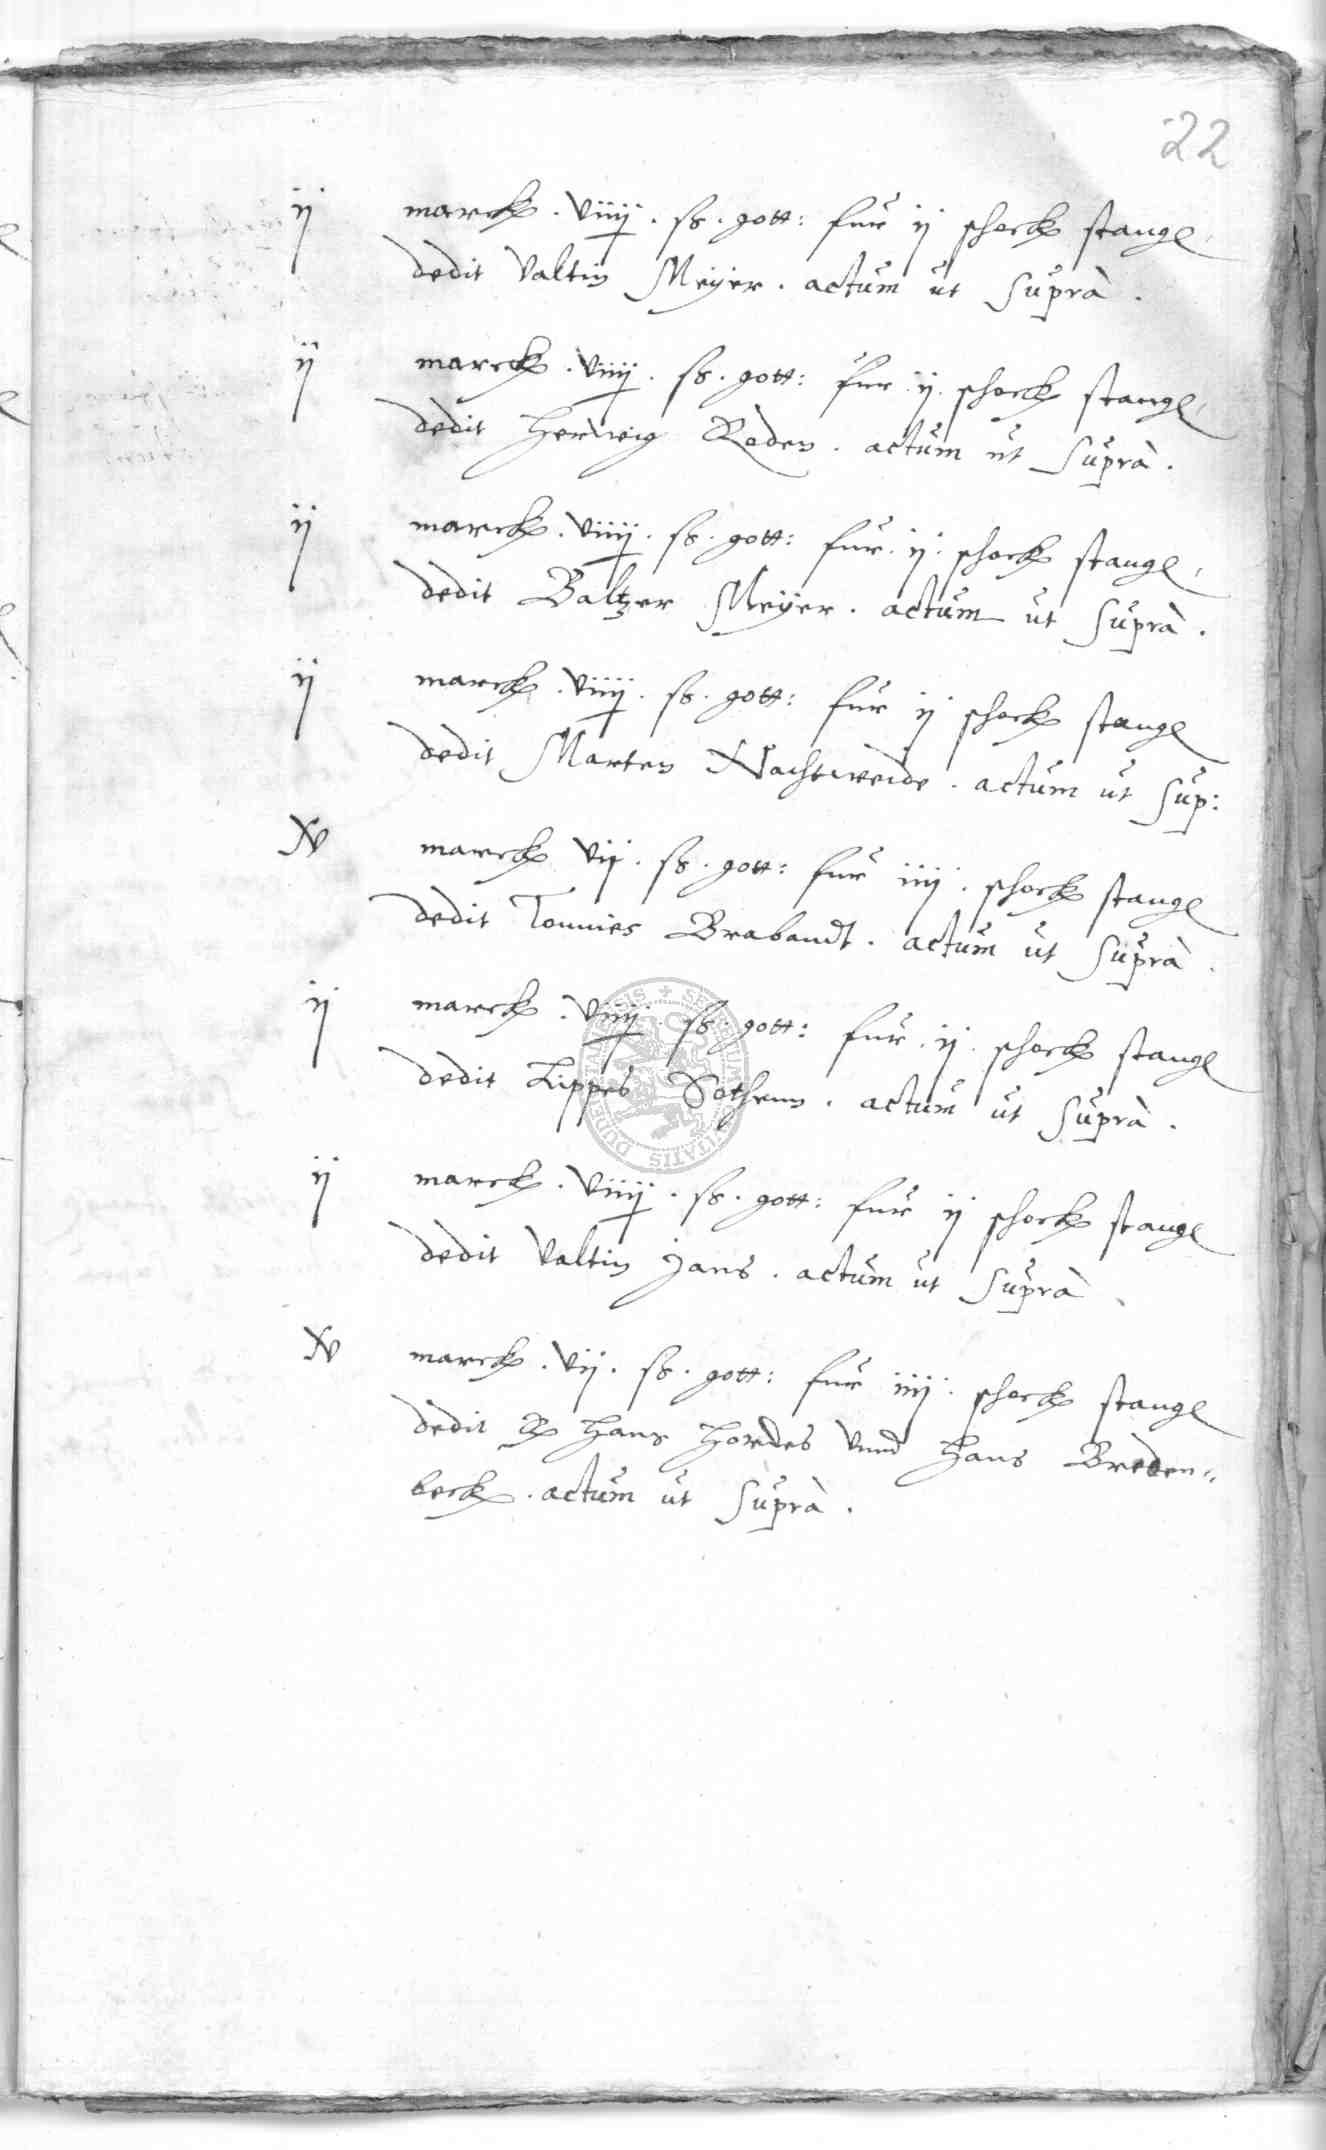 22
ij marck . viiij . ß . gott: fur ij schock stang
dedit Valtin Meyer . actum ut supra .
ij marck . viiij . ß . gott: fur ij . schock stang
dedit Herwig Roden . actum ut supra .
ij marck . viiij . ß . gott: fur . ij . schock stang
dedit Baltzer Meyer . actum ut supra .
ij marck . viiij . ß . gott: fur ij schock stang
dedit Marten Nachtweide . actum ut sup:
v marck vij . ß . gott: fur iiij . schock stang
dedit Tonnies Brabandt . actum ut supra .
ij marck . viiij . ß . gott: fur . ij . schock stang
dedit Lippes Sothenn . actum ut supra .
ij marck . viiij . ß . gott: fur ij schock stang
dedit Valtin Jans . actum ut supra .
v marck . vij . ß . gott: fur iiij . schock stang
dedit Hans Hordes unnd Hans Breden=
beck . actum ut supra .